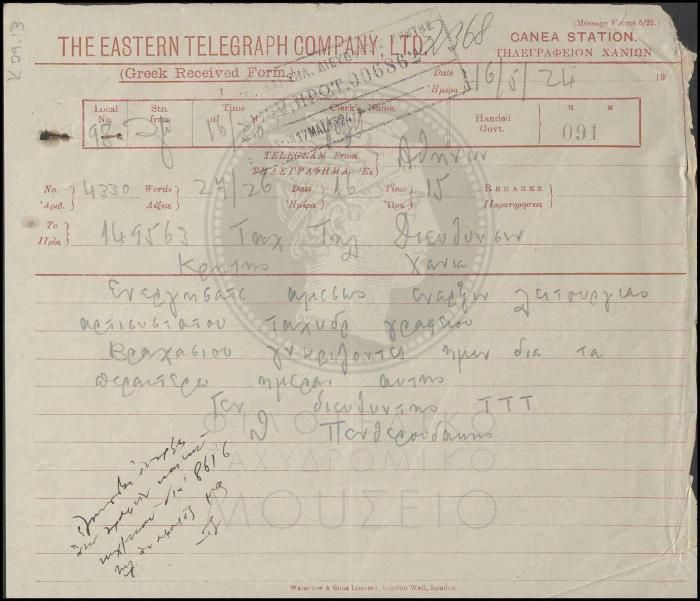 K 09.13
(Message Forms 5/22.)
THE EASTERN TELEGRAPH COMPANY, LTD. 2368
CANEA STATION.
ΤΗΛΕΓΡΑΦΕΙΟΝ ΧΑΝΙΩΝ
(Greek Received Form.
ΠΡΩΤ. 906862
17 ΜΑΙ 1924
Date Ἡμέρα 16/5/24 19
Local No Stn. from Time H M Clerk's Name. Handed Govt. H M
98 16 091
TELEGRAM From ΤΗΛΕΓΡΑΦΗΜΑ Ἐκ Αθηνων
No. Ἀριθ. 4330 Words Λέξεις 27/26 Date Ἡμέρα 16 Time Ὥρα 15 REMARKS Παρατηρησεις
To Πρὸς 149563 Ταχ Τηλ Διευθυνσιν
Κρητης Χανια
Ενεργησατε αμεσως εναρξιν λειτουργιας
αρτισυστατου ταχυδρ γραφειου
Βραχασιου γνωριζοντες ημιν δια τα
περαιτερω ημεραν αυτης
Γεν διευθυντης ΤΤΤ
Θ Πενθερουδακης
ΦΙΛΟΤΕΛΙΚΟ
ΤΑΧΥΔΡΟΜΙΚΟ
ΜΟΥΣΕΙΟ
Waterlow & Sons Limited, London Wall, London.